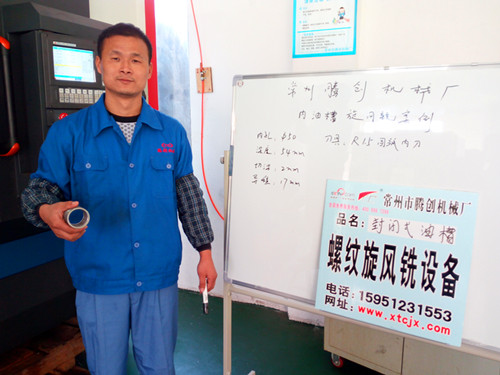 常州腾创机械厂
内油槽旋风铣案例
内孔: φ50 刀具: R15圆弧内刀
深度: 54mm
切深: 2mm
导程: 17mm
常州市腾创机械厂
品名: 封闭式油槽
螺纹旋风铣设备
电话: 15951231553
网址: www.xtcjx.com